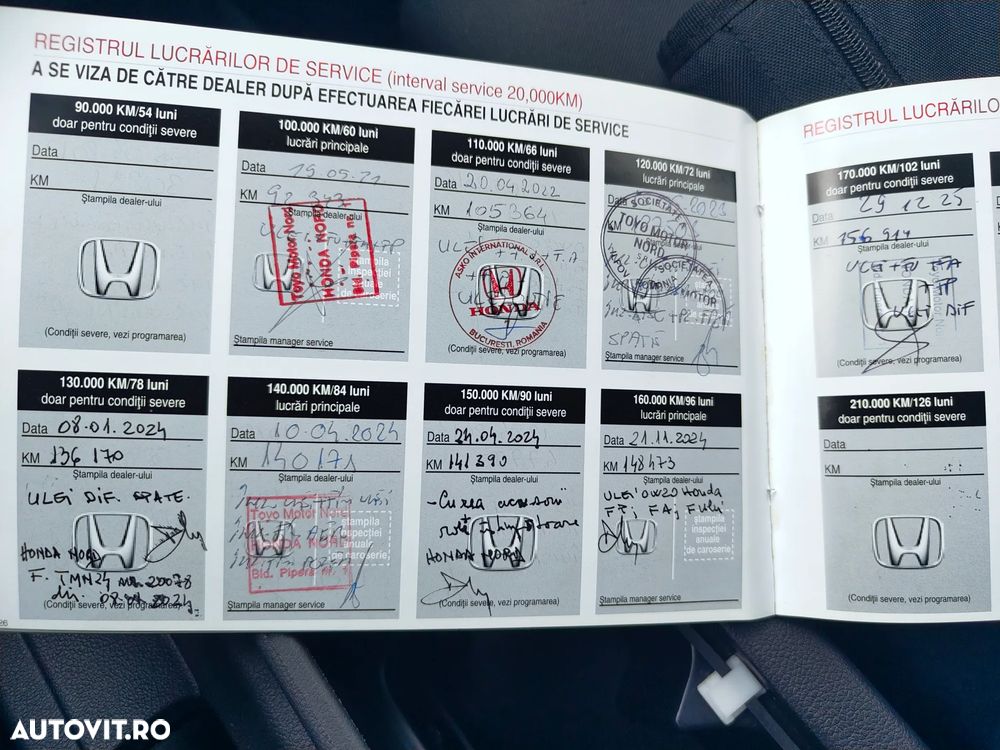 REGISTRUL LUCRĂRILOR DE SERVICE (interval service 20,000KM)
A SE VIZA DE CĂTRE DEALER DUPĂ EFECTUAREA FIECĂREI LUCRĂRI DE SERVICE
90.000 KM/54 luni
doar pentru condiții severe
Data
KM
Ștampila dealer-ului
(Condiții severe, vezi programarea)
100.000 KM/60 luni
lucrări principale
Data 19.05.21
KM 92 343
Ștampila dealer-ului
Toyo Motor Nord
HONDA NORD
Bld. Pipera nr.
ștampila
inspecției
anuale
de caroserie
Ștampila manager service
110.000 KM/66 luni
doar pentru condiții severe
Data 20.04.2022
KM 105364
Ștampila dealer-ului
ASKO INTERNATIONAL S.R.L.
HONDA
BUCUREȘTI, ROMANIA
(Condiții severe, vezi programarea)
120.000 KM/72 luni
lucrări principale
Data 2023
KM
SOCIETATEA
TOYO MOTOR
NORD
ROMANIA
SPATE
Ștampila manager service
130.000 KM/78 luni
doar pentru condiții severe
Data 08.01.2024
KM 136 170
Ștampila dealer-ului
ULEI DIF. SPATE.
HONDA NORD
F. TMN24 20078
din 08.01.2024
(Condiții severe, vezi programarea)
140.000 KM/84 luni
lucrări principale
Data 10.04.2024
KM 140171
Ștampila dealer-ului
Toyo Motor Nord
HONDA NORD
Bld. Pipera nr. 1
ștampila
inspecției
anuale
de caroserie
Ștampila manager service
150.000 KM/90 luni
doar pentru condiții severe
Data 24.04.2024
KM 141390
Ștampila dealer-ului
- Curea accesorii
rolă întinzătoare
HONDA NORD
(Condiții severe, vezi programarea)
160.000 KM/96 luni
lucrări principale
Data 21.11.2024
KM 148473
Ștampila dealer-ului
ULEI 0W20 Honda
FP; FA; Fului
ștampila
inspecției
anuale
de caroserie
Ștampila manager service
26
REGISTRUL LUCRĂRILO
170.000 KM/102 luni
doar pentru condiții severe
Data 29 12 25
KM 156 914
Ștampila dealer-ului
ULEI+FU FA
+ FP
ULEI DIF
(Condiții severe, vezi programarea)
210.000 KM/126 luni
doar pentru condiții severe
Data
KM
Ștampila dealer-ului
(Condiții severe, vezi programarea)
AUTOVIT.RO